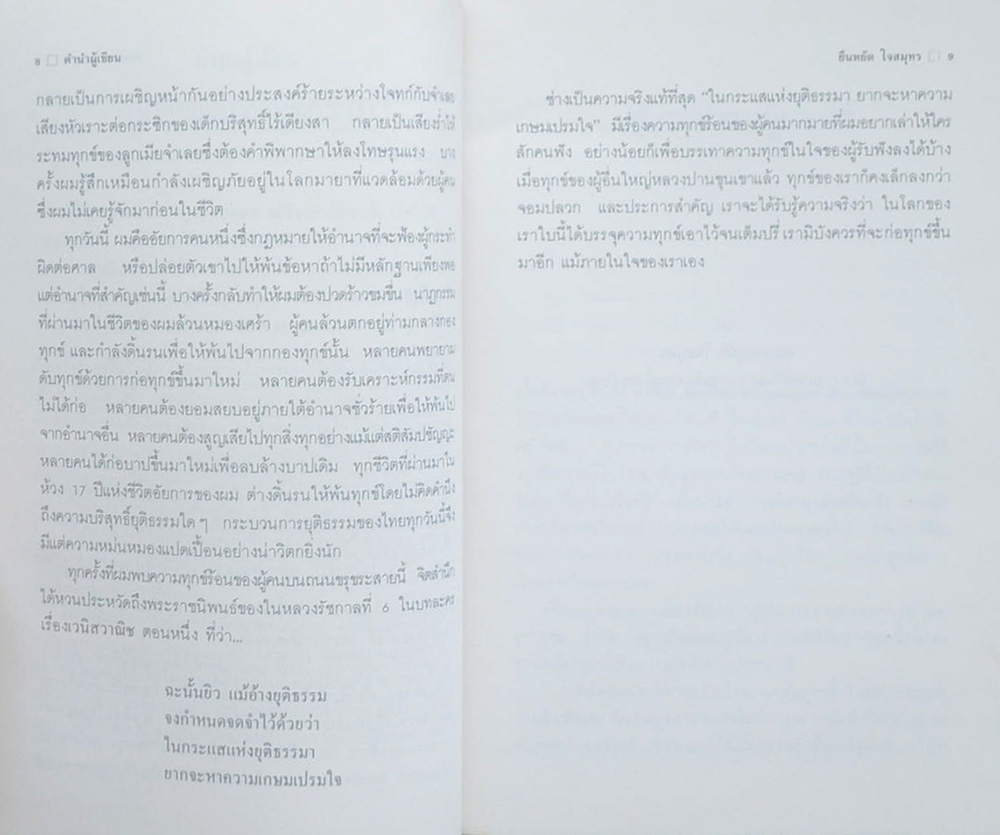 8 คำนำผู้เขียน
กลายเป็นการเผชิญหน้ากันอย่างประสงค์ร้ายระหว่างโจทก์กับจำเลย
เสียงหัวเราะต่อกระซิกของเด็กบริสุทธิ์ไร้เดียงสา กลายเป็นเสียงร่ำไห้
ระทมทุกข์ของลูกเมียจำเลยซึ่งต้องคำพิพากษาให้ลงโทษรุนแรง บาง
ครั้งผมรู้สึกเหมือนกำลังเผชิญภัยอยู่ในโลกมายาที่แวดล้อมด้วยผู้คน
ซึ่งผมไม่เคยรู้จักมาก่อนในชีวิต
ทุกวันนี้ ผมคืออัยการคนหนึ่งซึ่งกฎหมายให้อำนาจที่จะฟ้องผู้กระทำ
ผิดต่อศาล หรือปล่อยตัวเขาไปให้พ้นข้อหาถ้าไม่มีหลักฐานเพียงพอ
แต่อำนาจที่สำคัญเช่นนี้ บางครั้งกลับทำให้ผมต้องปวดร้าวขมขื่น นาฏกรรม
ที่ผ่านมาในชีวิตของผมล้วนหมองเศร้า ผู้คนล้วนตกอยู่ท่ามกลางกอง
ทุกข์ และกำลังดิ้นรนเพื่อให้พ้นไปจากกองทุกข์นั้น หลายคนพยายาม
ดับทุกข์ด้วยการก่อทุกข์ขึ้นมาใหม่ หลายคนต้องรับเคราะห์กรรมที่ตน
ไม่ได้ก่อ หลายคนต้องยอมสยบอยู่ภายใต้อำนาจชั่วร้ายเพื่อให้พ้นไป
จากอำนาจอื่น หลายคนต้องสูญเสียไปทุกสิ่งทุกอย่างแม้แต่สติสัมปชัญญะ
หลายคนได้ก่อบาปขึ้นมาใหม่เพื่อลบล้างบาปเดิม ทุกชีวิตที่ผ่านมาใน
ห้วง 17 ปีแห่งชีวิตอัยการของผม ต่างดิ้นรนให้พ้นทุกข์โดยไม่คิดคำนึง
ถึงความบริสุทธิ์ยุติธรรมใด ๆ กระบวนการยุติธรรมของไทยทุกวันนี้จึง
มีแต่ความหม่นหมองแปดเปื้อนอย่างน่าวิตกยิ่งนัก
ทุกครั้งที่ผมพบความทุกข์ร้อนของผู้คนบนถนนขรุขระสายนี้ จิตสำนึก
ได้หวนประหวัดถึงพระราชนิพนธ์ของในหลวงรัชกาลที่ 6 ในบทละคร
เรื่องเวนิสวาณิช ตอนหนึ่ง ที่ว่า...
ฉะนั้นยิว แม้อ้างยุติธรรม
จงกำหนดจดจำไว้ด้วยว่า
ในกระแสแห่งยุติธรรมา
ยากจะหาความเกษมเปรมใจ
ยืนหยัด ใจสมุทร 9
ช่างเป็นความจริงแท้ที่สุด "ในกระแสแห่งยุติธรรมา ยากจะหาความ
เกษมเปรมใจ" มีเรื่องความทุกข์ร้อนของผู้คนมากมายที่ผมอยากเล่าให้ใคร
สักคนฟัง อย่างน้อยก็เพื่อบรรเทาความทุกข์ในใจของผู้รับฟังลงได้บ้าง
เมื่อทุกข์ของผู้อื่นใหญ่หลวงปานขุนเขาแล้ว ทุกข์ของเราก็คงเล็กลงกว่า
จอมปลวก และประการสำคัญ เราจะได้รับรู้ความจริงว่า ในโลกของ
เราใบนี้ได้บรรจุความทุกข์เอาไว้จนเต็มปรี่ เรามิบังควรที่จะก่อทุกข์ขึ้น
มาอีก แม้ภายในใจของเราเอง